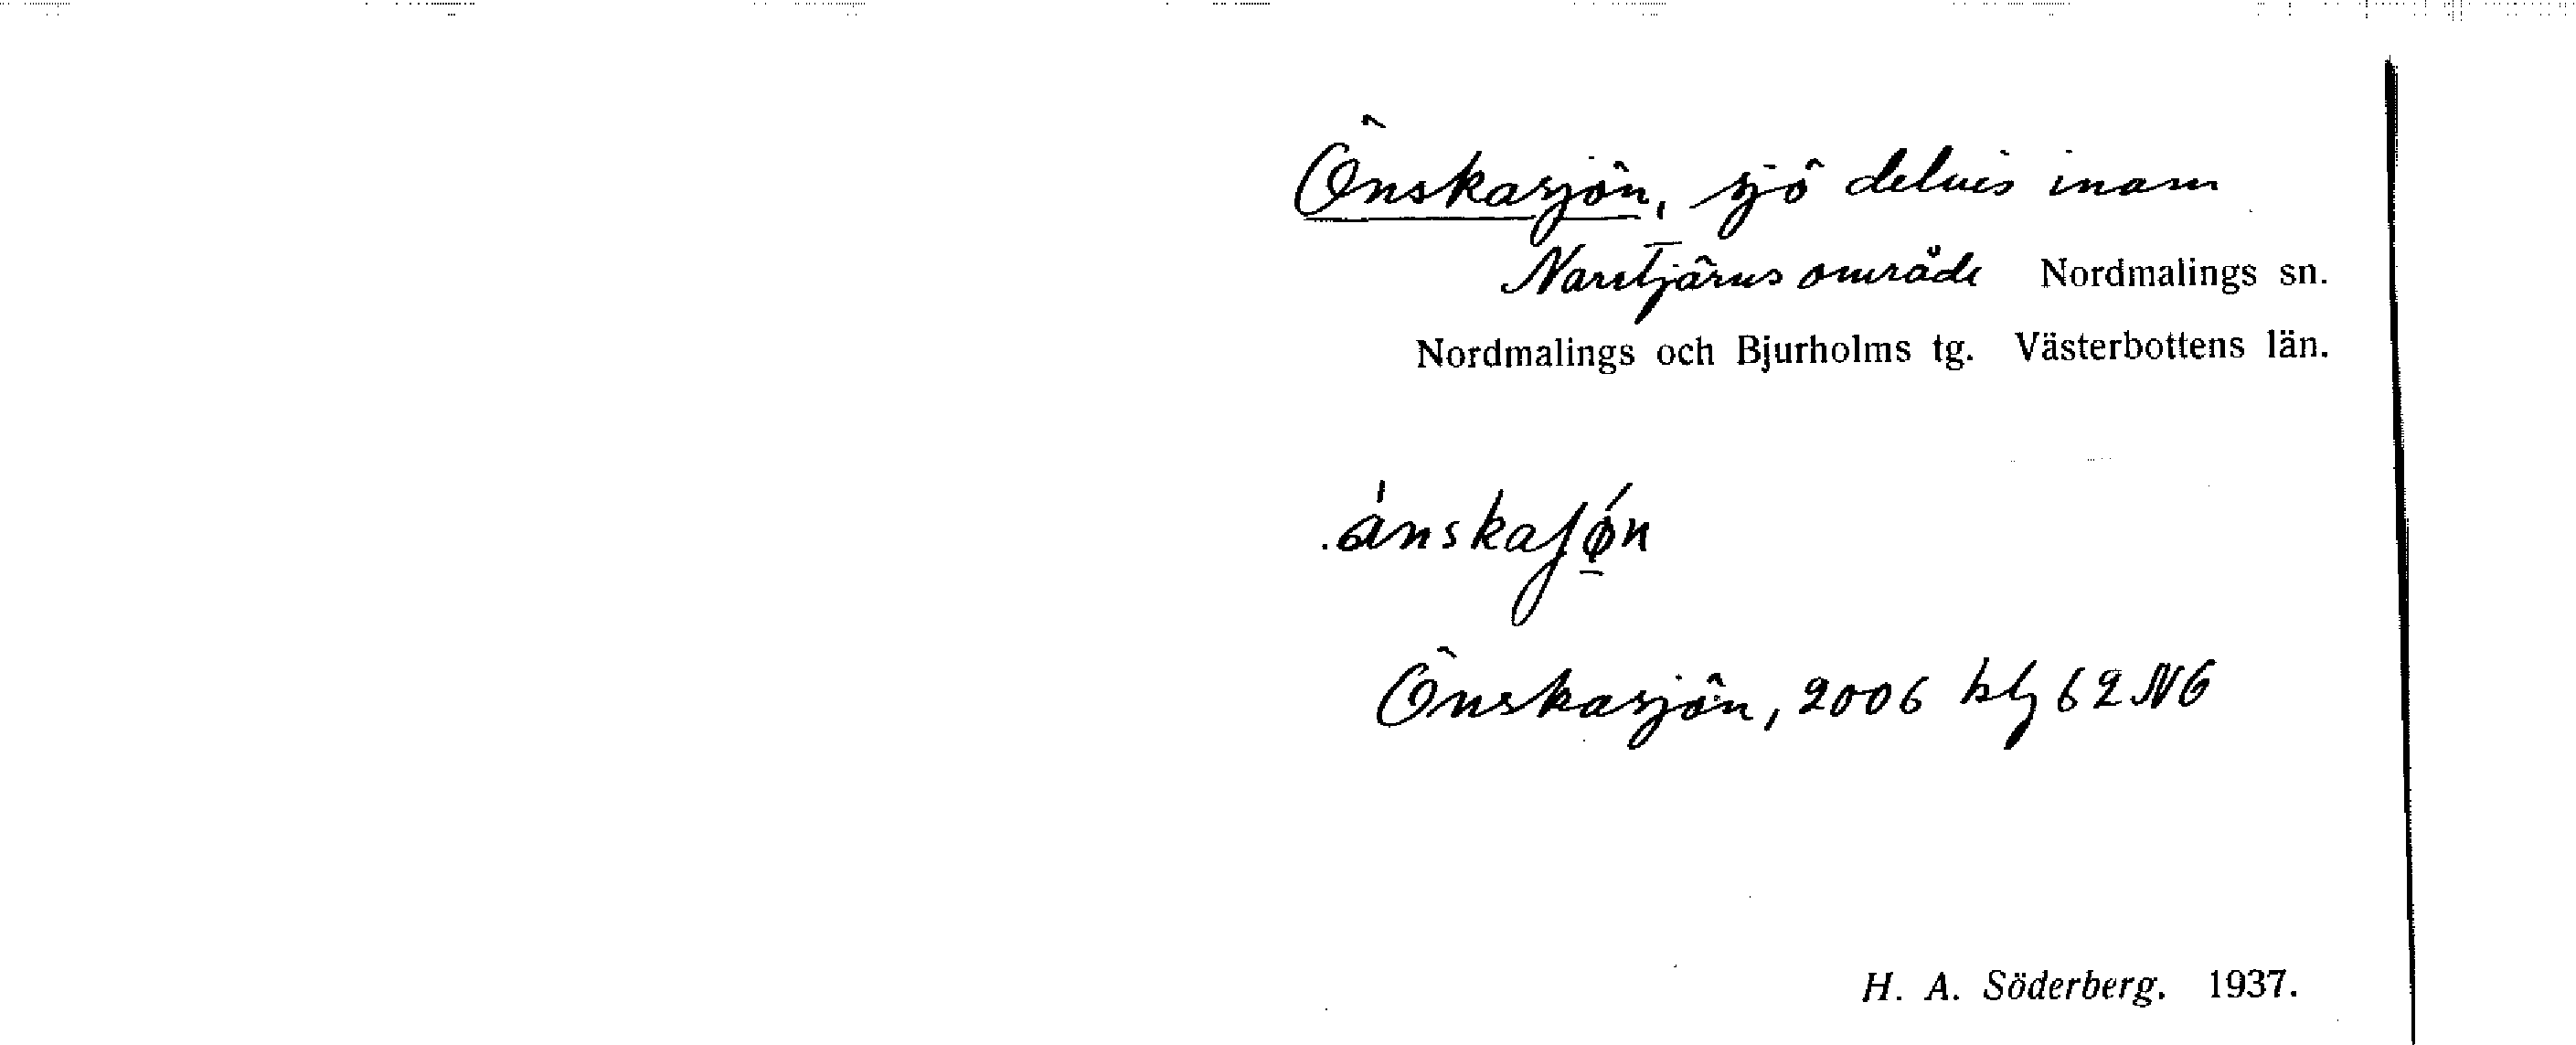 Önskasjön, sjö delvis inom
Nordmalings sn.
Nordmalings och Bjurholms tg. Västerbottens län.
Önskasjön, 2006 blj 62 NG
H. A. Söderberg. 1937.